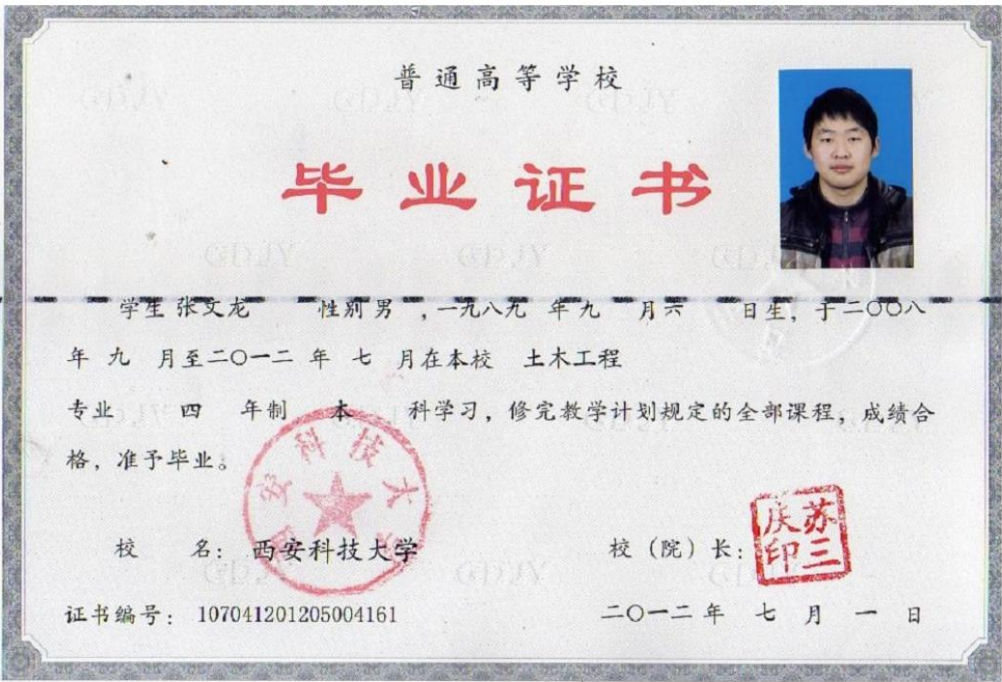 普通高等学校
毕业证书
学生 张文龙 性别 男 ,一九八九 年 九 月 六 日生, 于二〇〇八
年 九 月至二〇一二 年 七 月在本校 土木工程
专业 四 年制 本 科学习, 修完教学计划规定的全部课程, 成绩合
格, 准予毕业。
西安科技大学
校 名: 西安科技大学
校（院）长: 苏三庆印
证书编号: 107041201205004161
二〇一二 年 七 月 一 日
GDJY GDJY GDJY
GDJY GDJY GDJY
GDJY GDJY